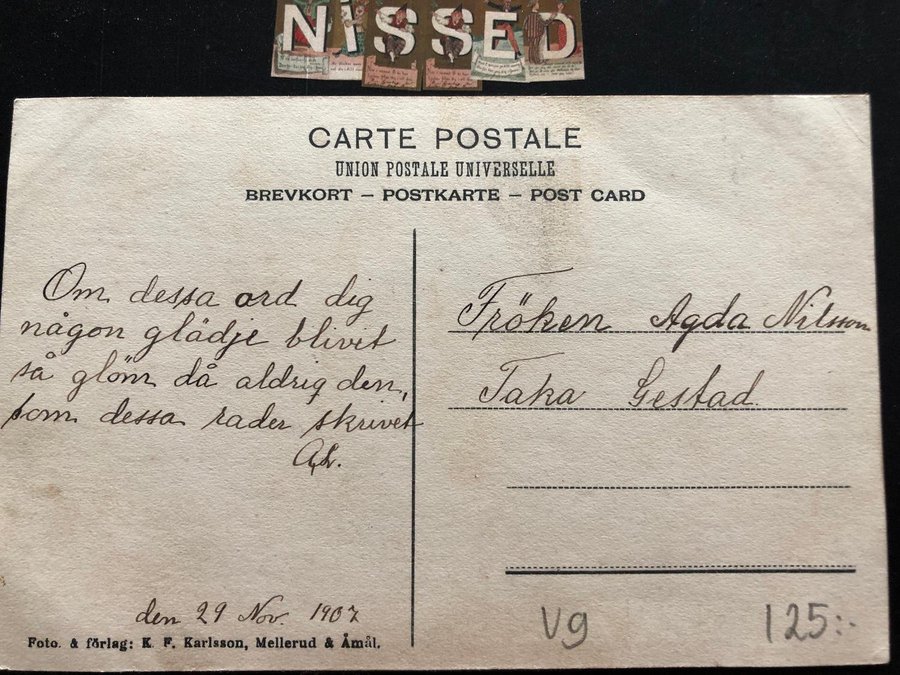 NISSED
CARTE POSTALE
UNION POSTALE UNIVERSELLE
BREVKORT – POSTKARTE – POST CARD
Om dessa ord dig
någon glädje blivit
så glöm då aldrig den,
som dessa rader skrivet
den 29 Nov. 1907
Foto. & förlag: K. F. Karlsson, Mellerud & Åmål.
Fröken Agda Nilsson
Taka Gestad.
Vg
125:-